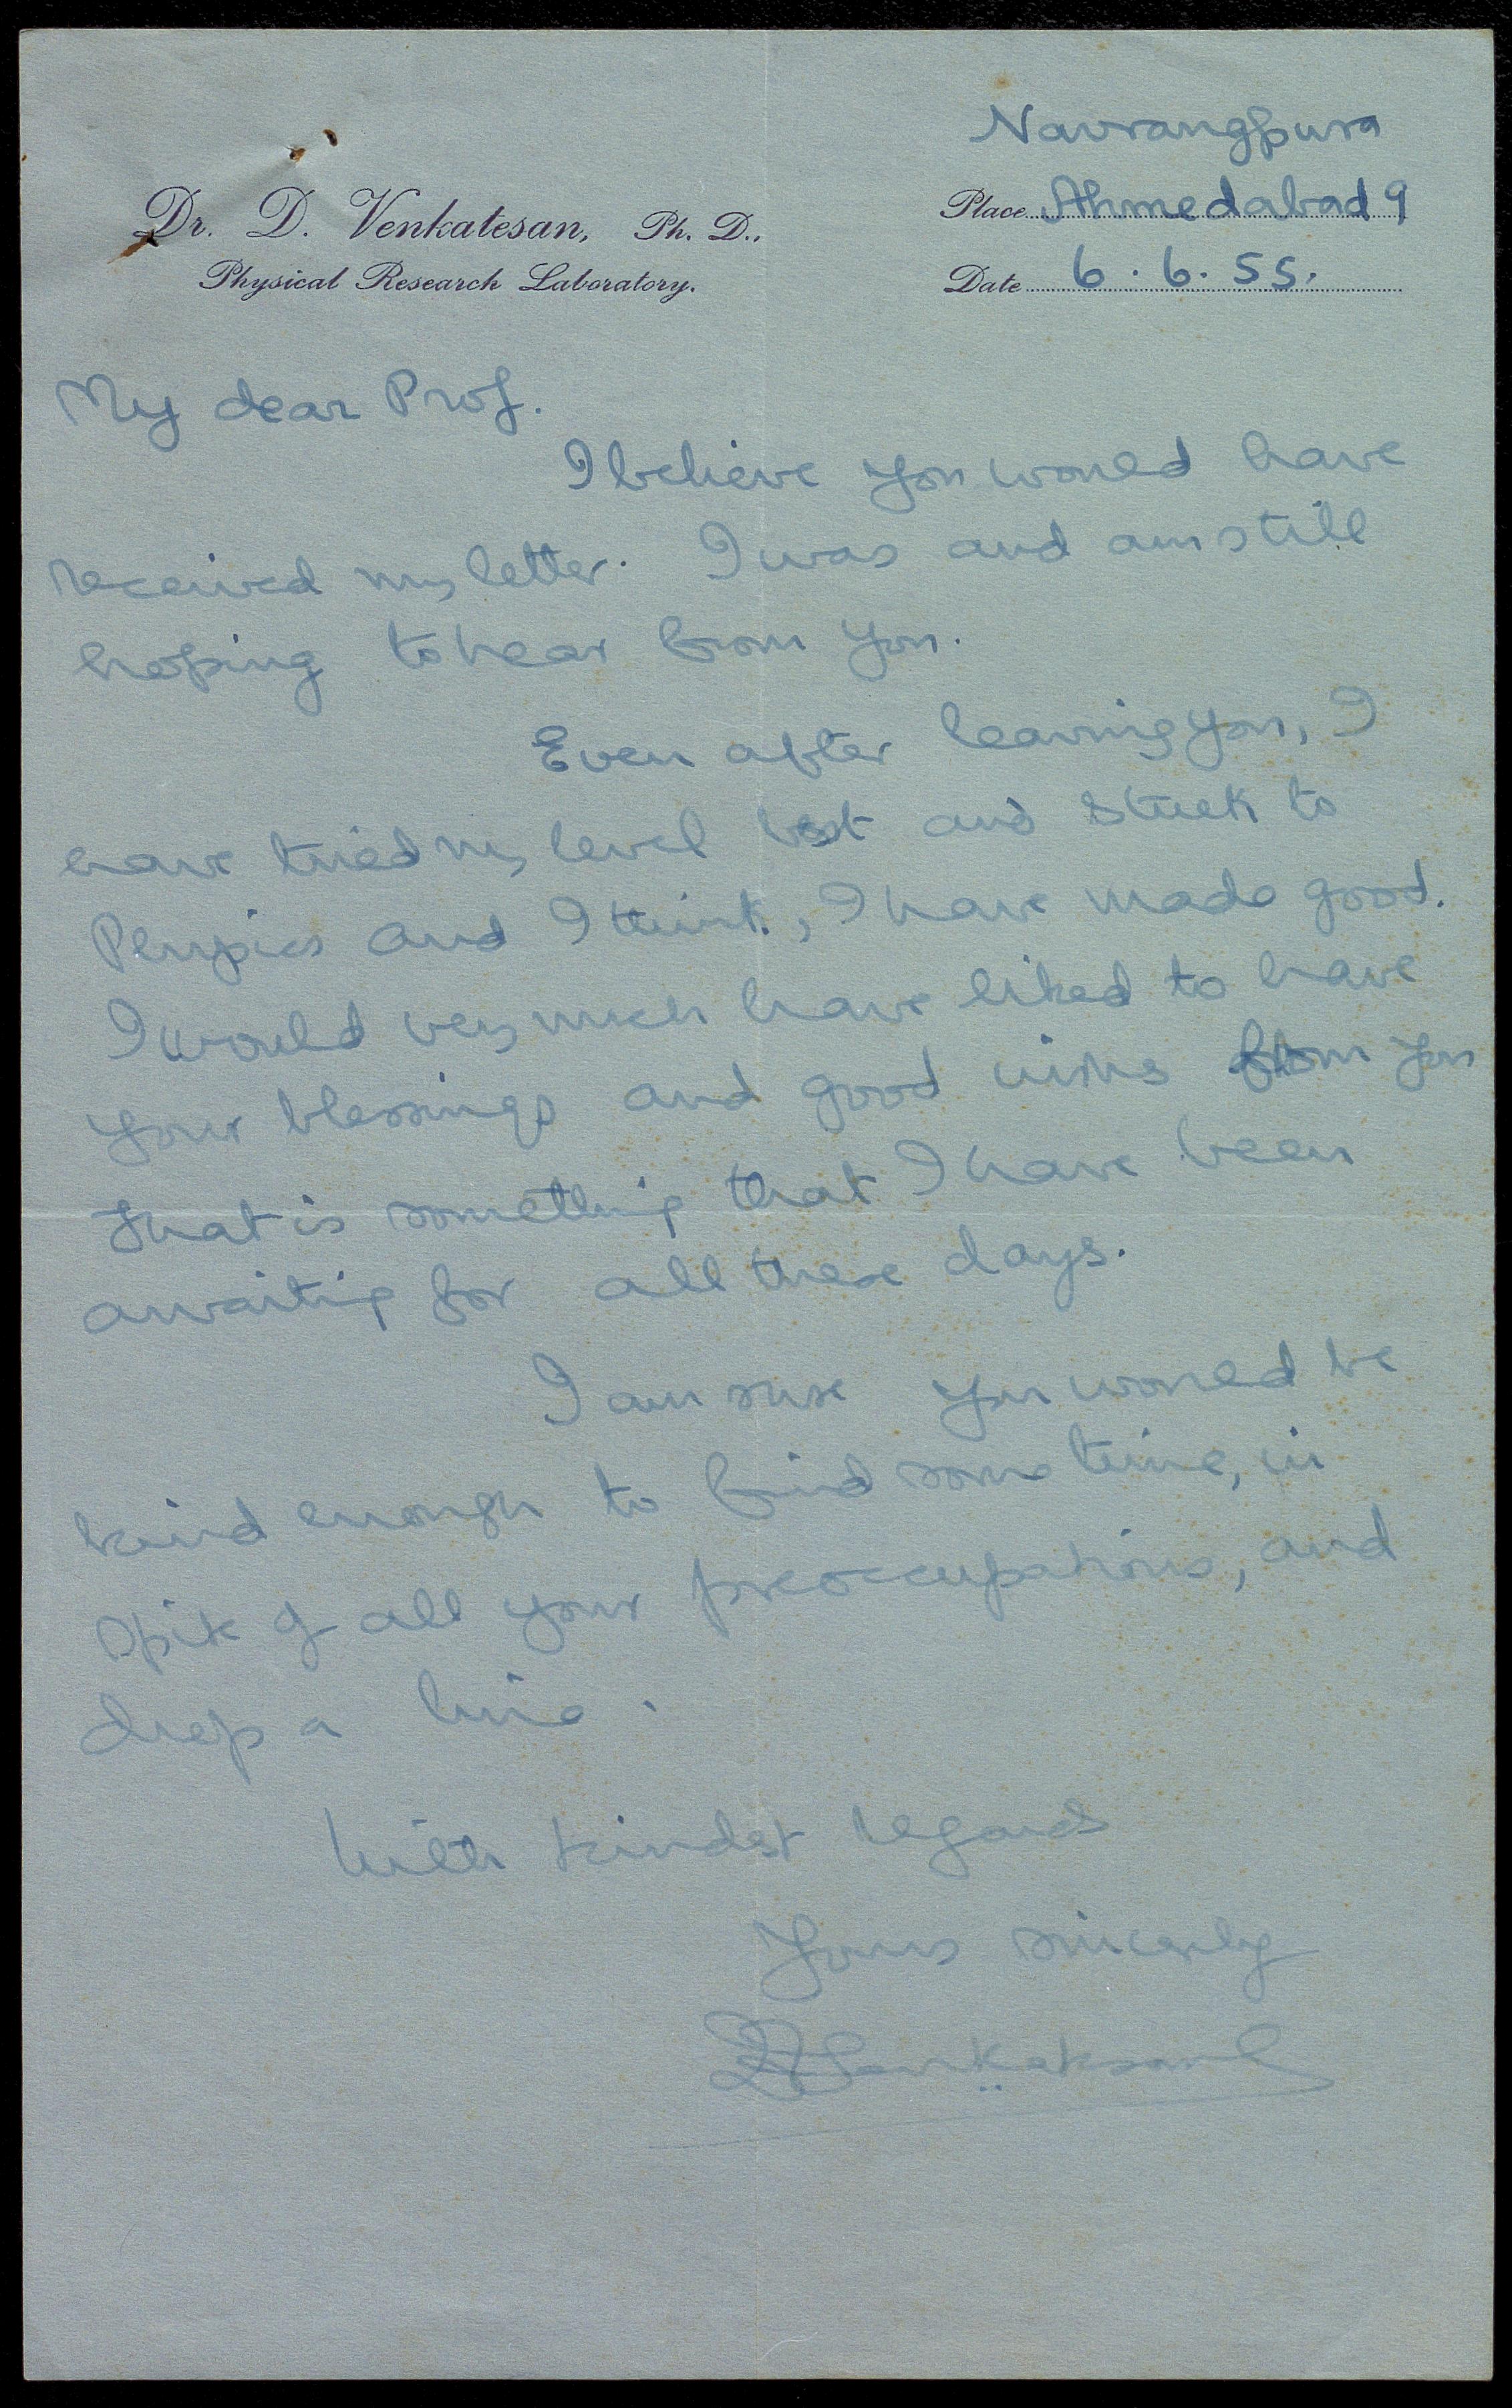 Navrangpura
Dr. D. Venkatesan, Ph. D.,
Place Ahmedabad 9
Physical Research Laboratory.
Date 6. 6. 55.
My dear Prof.
I believe you would have
received my letter. I was and am still
hoping to hear from you.
Even after leaving you, I
have tried my level best and stuck to
and I think, I have made good.
I would very much have liked to have
your blessings and good wishes from you
that is something that I have been
awaiting for all these days.
I am sure you would be
kind enough to find some time, in
spite of all your preoccupations, and
drop a line.
With kindest regards
Yours sincerely
D Venkatesan